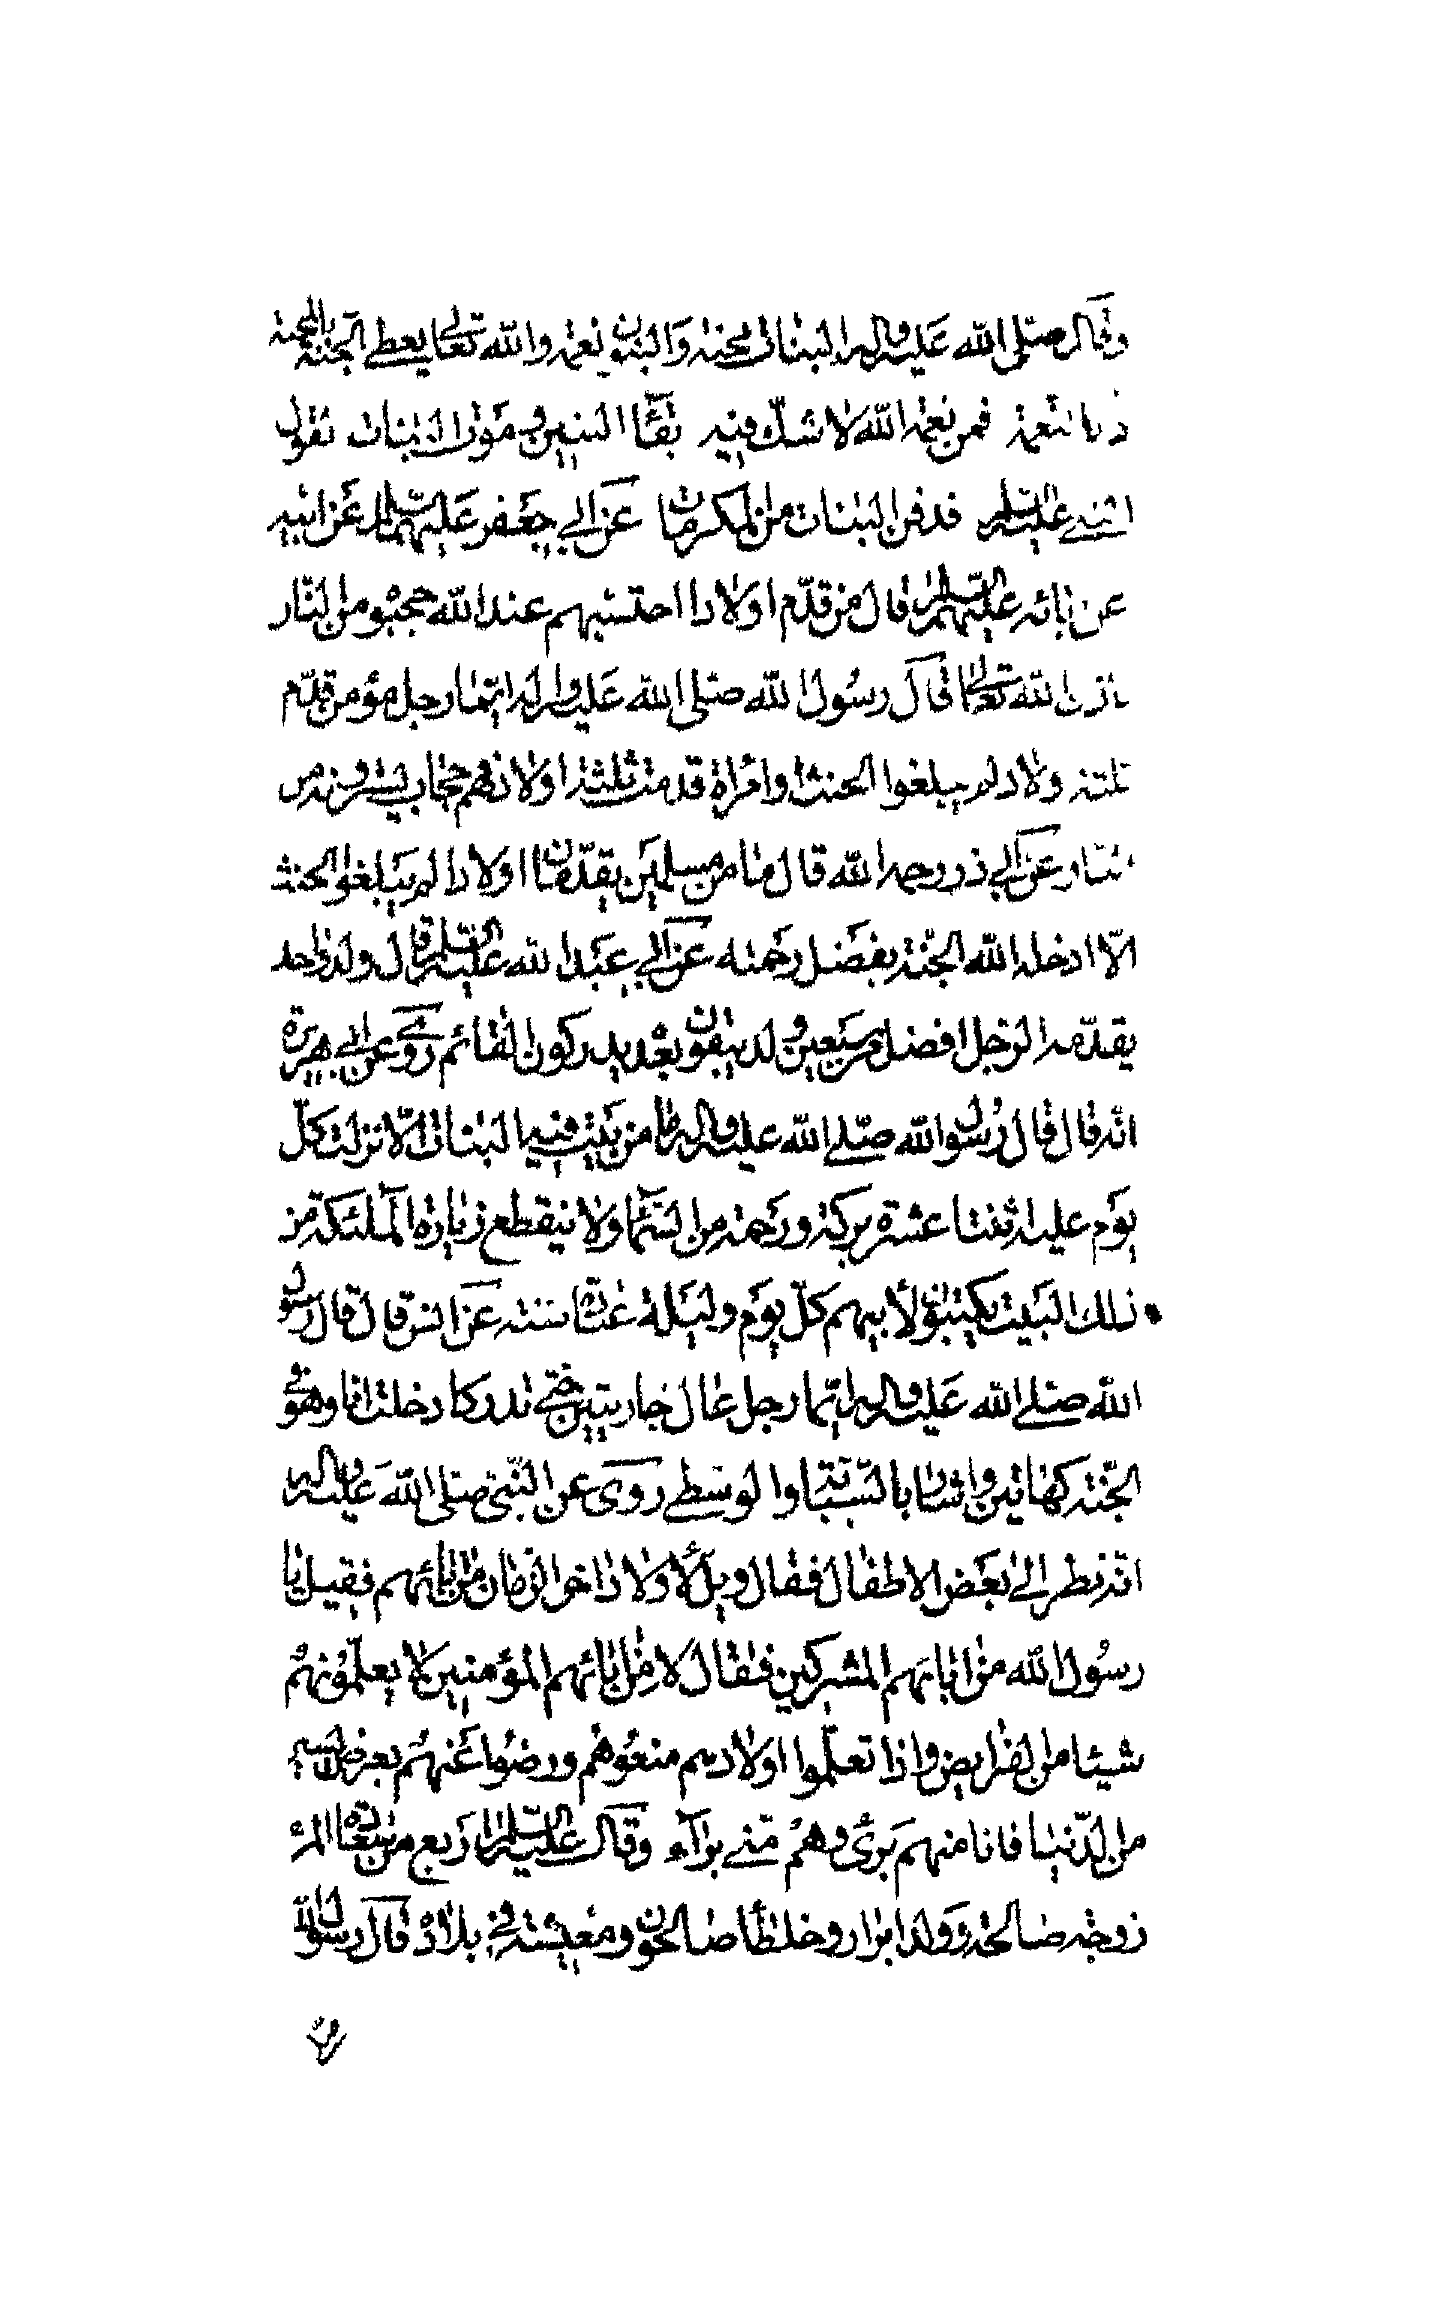 وقال صلى الله عليه واله البنات محنة والبنون نعمة والله تعالى يعطى الجنة بالمحنة
لا بالنعمة فمن نعمة الله لا شك فيه بقاء البنين و موت البنات نقول
النبى عليه السلام دفن البنات من المكرمات عن ابي جعفر عليهما السلام عن ابيه
عن ابائه عليهم السلام قال من قدّم اولادا احتسبهم عند الله حجبوه من النار
باذن الله تعالى قال رسول الله صلى الله عليه واله ايّما رجل مؤمن قدّم
ثلثة اولاد لم يبلغوا الحنث او امراة قدمت ثلثة اولاد فهم حجاب يسترونه من
النار وعن ابي ذر رحمه الله قال ما من مسلمين يقدّمان اولادا لم يبلغوا الحنث
الّا ادخله الله الجنة بفضل رحمته عن ابي عبد الله عليه السلام قال ولد واحد
يقدّمه الرجل افضل من سبعين ولد يبقون بعده يدركون القائم روى عن ابي هريرة
انه قال قال رسول الله صلّى الله عليه واله ما من بيت فيه البنات الّا نزلت كلّ
يوم عليه اثنتا عشرة بركة ورحمة من السّماء ولا ينقطع زيارة الملئكة من
ذلك البيت يكتبون لأبيهم كلّ يوم وليلة عبادة سنة عن انس قال قال رسول
الله صلى الله عليه واله ايّما رجل عال جاريتين حتى تدركا دخلت انا وهو في
الجنّة كهاتين واشار بالسبّابة والوسطى روى عن النّبي صلى الله عليه واله
انّه نظر الى بعض الاطفال فقال ويل لأولاد اخر الزمان من ابائهم فقيل يا
رسول الله من ابائهم المشركين فقال لا من ابائهم المؤمنين لا يعلّمونهم
شيئا من الفرايض واذا تعلّموا اولادهم منعوهم ورضوا عنهم بعرض يسير
من الدّنيا فانا منهم برئ وهم منى براء وقال عليه السلام اربع من سعادة المرء
زوجة صالحة وولد ابرار وخلطاء صالحون ومعيشة في بلاده قال رسول الله